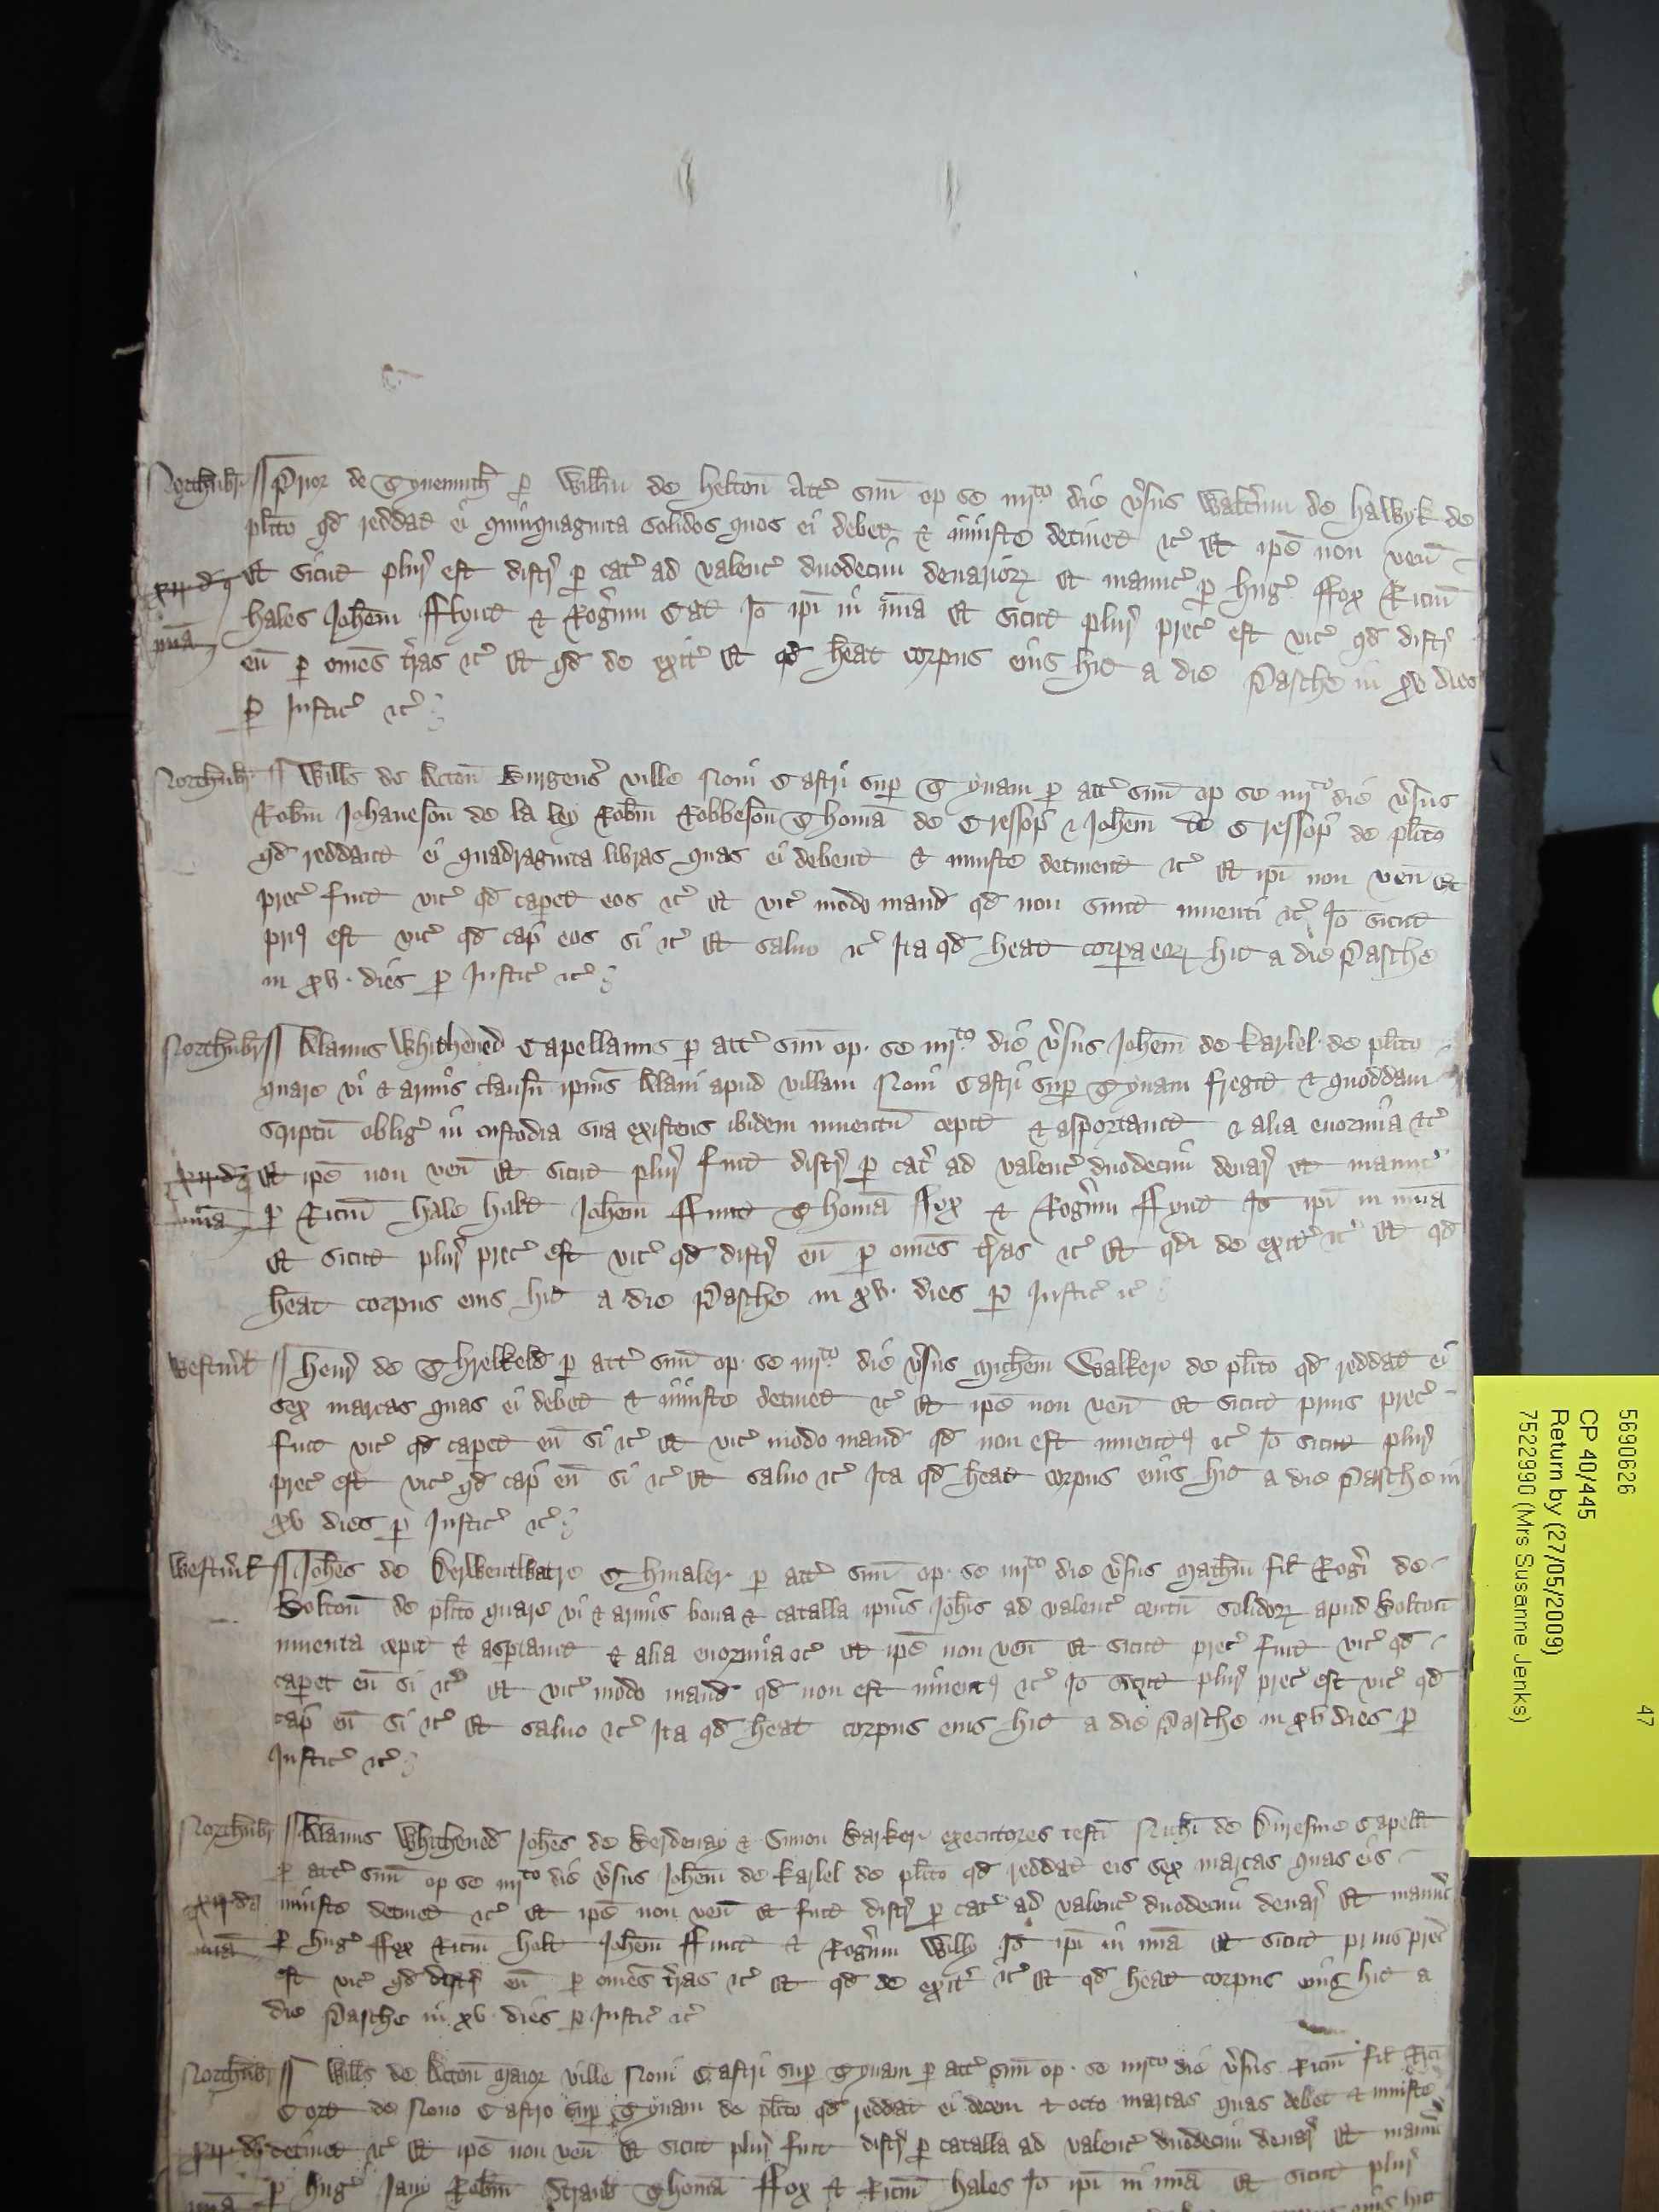 Northubr' Prior de Tynemuth' p Willm de Helton Attʳ suu op se iiijto die vsus Walterum de Hawyk de
plito qd reddat ei quinquaginta solidos quos ei debet & iniuste detinet &c Et ipe non ven
xij d Et sicut plur est distr p cat' ad valenc' duodecim denarior Et manuc' p Hug' ffox Ricm
mia Hales Johem fflynt & Rogum Io ipi in mia Et sicut plur prec' est vic' qd distr
eu p omes tras &c Et qd de exit' Et qd heat corpus eius hic a die Pasche in xv dies
p Justic' &c
Northubr' Wills de Acton Burgens' ville Noui Castri sup Tynam p att' suu op se iiijto die vsus
Robm Johaneson de la ley Robm Robbeson Thoma de Gressop & Johem de Gressop de plito
qd reddant ei quadraginta libras quas ei debent & iniuste detinent &c Et ipi non ven Et
prec' fuit vic' qd caperet eos &c Et vic' modo mand qd non sunt inuenti &c Io sicut
prius est vic' qd cap eos si &c Et saluo &c Ita qd heat corpa eor hic a die Pasche
in xv dies p Justic' &c
Northubr' Alanus Whitheued Capellanus p att' suu op se iiijto die vsus Johem de Karlel de plito
quare vi & armis clausu ipius Alani apud villam Noui Castri sup Tynam fregit & quoddam
scriptu oblig' in custodia sua existens ibidem inuentu cepit & asportauit & alia enormia &c
xij d Et ipe non ven Et sicut plur fuit distr p cat' ad valenc' duodecim denar Et manuc'
mia p Ricm Hale Johem fflint Thoma ffox & Rogum fflynt Io ipi in mia
Et sicut plur prec' est vic' qd distr eu p omes tras &c Et qd de exit' &c Et qd
heat corpus eius hic a die Pasche in xv dies p Justic' &c
Westmrl' Henr de Threlkeld p att' suu op se iiijto die vsus Michem Walker de plito qd reddat ei
sex marcas quas ei debet & iniuste detinet &c Et ipe non ven Et sicut prius prec'
fuit vic' qd caperet eu si &c Et vic' modo mand qd non est inuent' &c Io sicut plur
prec' est vic' qd cap eu si &c Et saluo &c Ita qd heat corpus eius hic a die Pasche in
xv dies p Justic' &c
Westmrl' Johes de Derwentwatre Chiualer p att' suu op se iiijto die vsus Mathm fil Rogi de
Bolton de plito quare vi & armis bona & catalla ipius Johis ad valenc' centu solidor apud Bolton
inuenta cepit & asportauit & alia enormia &c Et ipe non ven Et sicut prec' fuit vic' qd
caperet eu si &c Et vic' modo mand qd non est inuent' &c Io sicut plur prec' est vic' qd
cap eu si &c Et saluo &c Ita qd heat corpus eius hic a die Pasche in xv dies p
Justic' &c
Northubr' Alanus Whitheued Johes de Berdenay & Simon Barker executores testi Nichi de Duresme Capelli
p att' suu op se iiijto die vsus Johem de Karlel de plito qd reddat eis sex marcas quas eis
xij d iniuste detinet &c Et ipe non ven Et fuit distr p cat' ad valenc' duodecim denar Et manuc'
mia p Hug' ffox Ricm Holt Johem fflint & Rogum Willy Io ipi in mia Et sicut prius prec'
est vic' qd distr eu p omes tras &c Et qd de exit' &c Et qd heat corpus eius hic a
die Pasche in xv dies p Justic' &c
Northubr' Wills de Acton Maior ville Noui Castri sup Tynam p att' suu op se iiijto die vsus Ricm fil Rici
de Nouo Castro sup Tynam de plito qd reddat ei decem & octo marcas quas debet & iniuste
xij d detinet &c Et ipe non ven Et sicut plur fuit distr p catalla ad valenc' duodecim denar Et manuc'
mia p Hug' Robm Thoma ffox & Ricm Hales Io ipi in mia Et sicut plur
eius hic
5690626
CP 40/445
Return by (27/05/2009)
7522990 (Mrs Susanne Jenks)
47